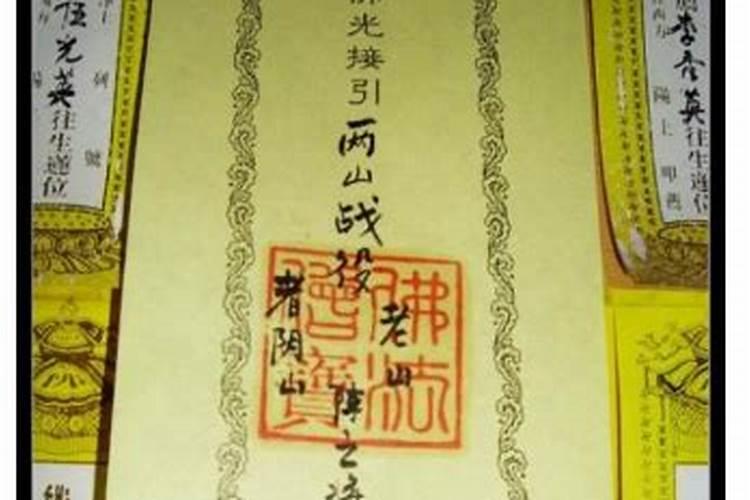 英往生蓮位
陽上 叩薦
佛光接引两山战役
老山
者阴山
阵亡
佛法
僧寶
伍光英往生蓮位